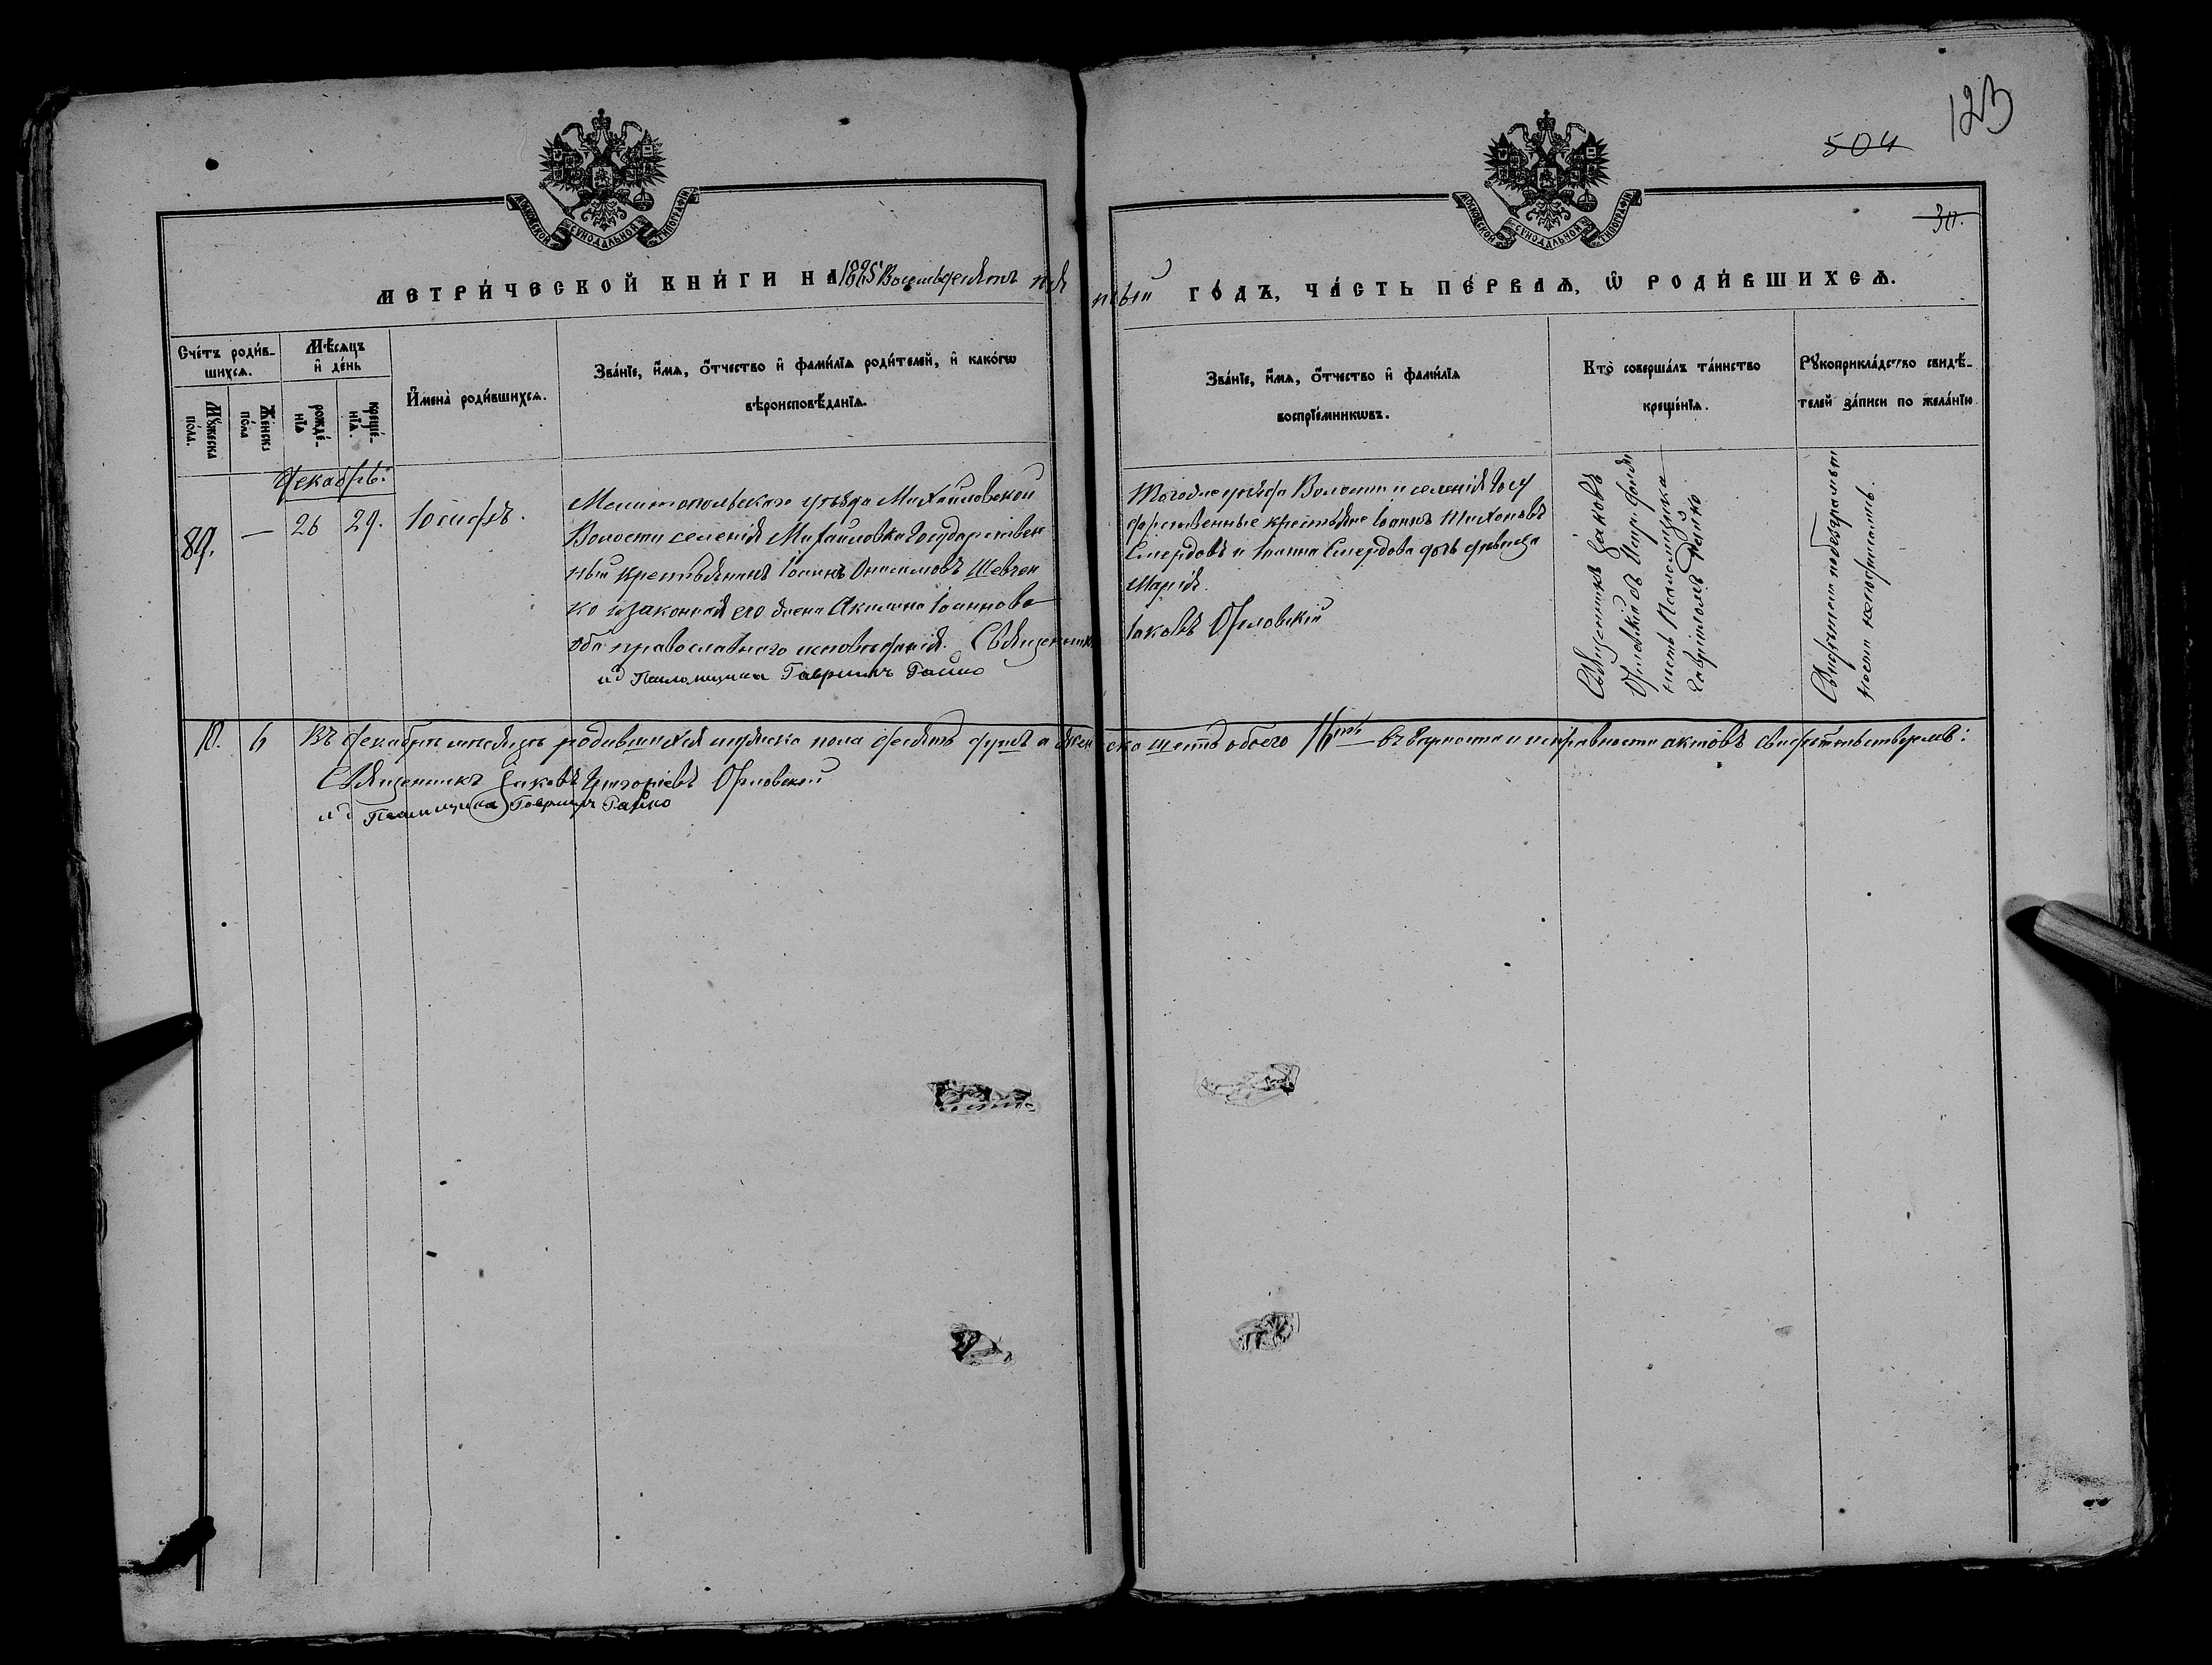 123
504
30.
МОСКОВСКОЙ СѴНОДАЛЬНОЙ ТИПОГРАФІИ
МОСКОВСКОЙ СѴНОДАЛЬНОЙ ТИПОГРАФІИ
МЕТРИ́ЧЕСКОЙ КНИ́ГИ НА 1885 Восемьдесятъ пя
тый ГО́ДЪ, ЧА́СТЬ ПЕ́РВАѦ, Ѡ҆ РОДИ́ВШИХСѦ.
Сче́тъ роди́в-
шихсѧ.
Мꙋ́жеска
по́ла.
Же́нска
по́ла
Мѣ́сѧцъ
и҆ де́нь
рожде́-
нїѧ
креще́-
нїѧ.
И҆мена̀ роди́вшихсѧ.
Зва́нїе, и҆́мѧ, ѻ҆́тчество и҆ фами́лїѧ роди́телей, и҆ како́гѡ
вѣроисповѣ́данїѧ.
Зва́нїе, и҆́мѧ, ѻ҆́тчество и҆ фами́лїѧ
воспрїе́мникѡвъ.
Кто̀ соверша́лъ та́инство
креще́нїѧ.
Рꙋкоприкла́дство свидѣ́-
телей за́писи по жела́нїю
Декабрь:
89. — 26 29. Іосифъ.
Мелитопольскаго уѣзда Михайловской
Волости селенія Михайловка Государствен
ный крестьянинъ Іоаннъ Онисимовъ Шевчен
ко и законная его жена Акилина Іоаннова
оба православнаго исповѣданія. Священникъ
и д Псаломщика Гавріилъ Гайко
Тогоже уѣзда Волости и селенія Госу
дарственные крестьяне Іоаннъ Тихоновъ
Смердовъ и Іоанна Смердова дочь дѣвица
Марія.
Іаковъ Орловскій
Священникъ Іаковъ
Орловскій съ Испр. долж
ность Псаломщика
Гавріиломъ Гайко
10. 6 Въ декабрѣ мѣсяцѣ родившихся мужска пола десять душъ а жен
ска шесть обоего 16ть — въ вѣрности и исправности актовъ свидѣтельствуемъ:
Священникъ Іаковъ Григоріевъ Орловскій
и д Псаломщика Гавріилъ Гайко